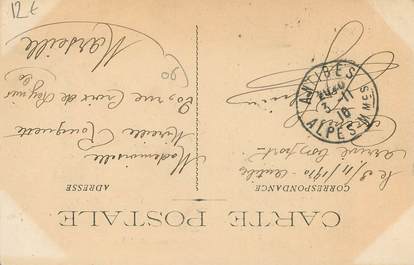 12€
CARTE POSTALE
CORRESPONDANCE
ADRESSE
le 3/11/1910 - Antibes
arrivé bon port.
Mademoiselle
Mireille Rouquette
80, rue Croix de Régnier
Marseille
ANTIBES
3-11
10
ALPES-MMES